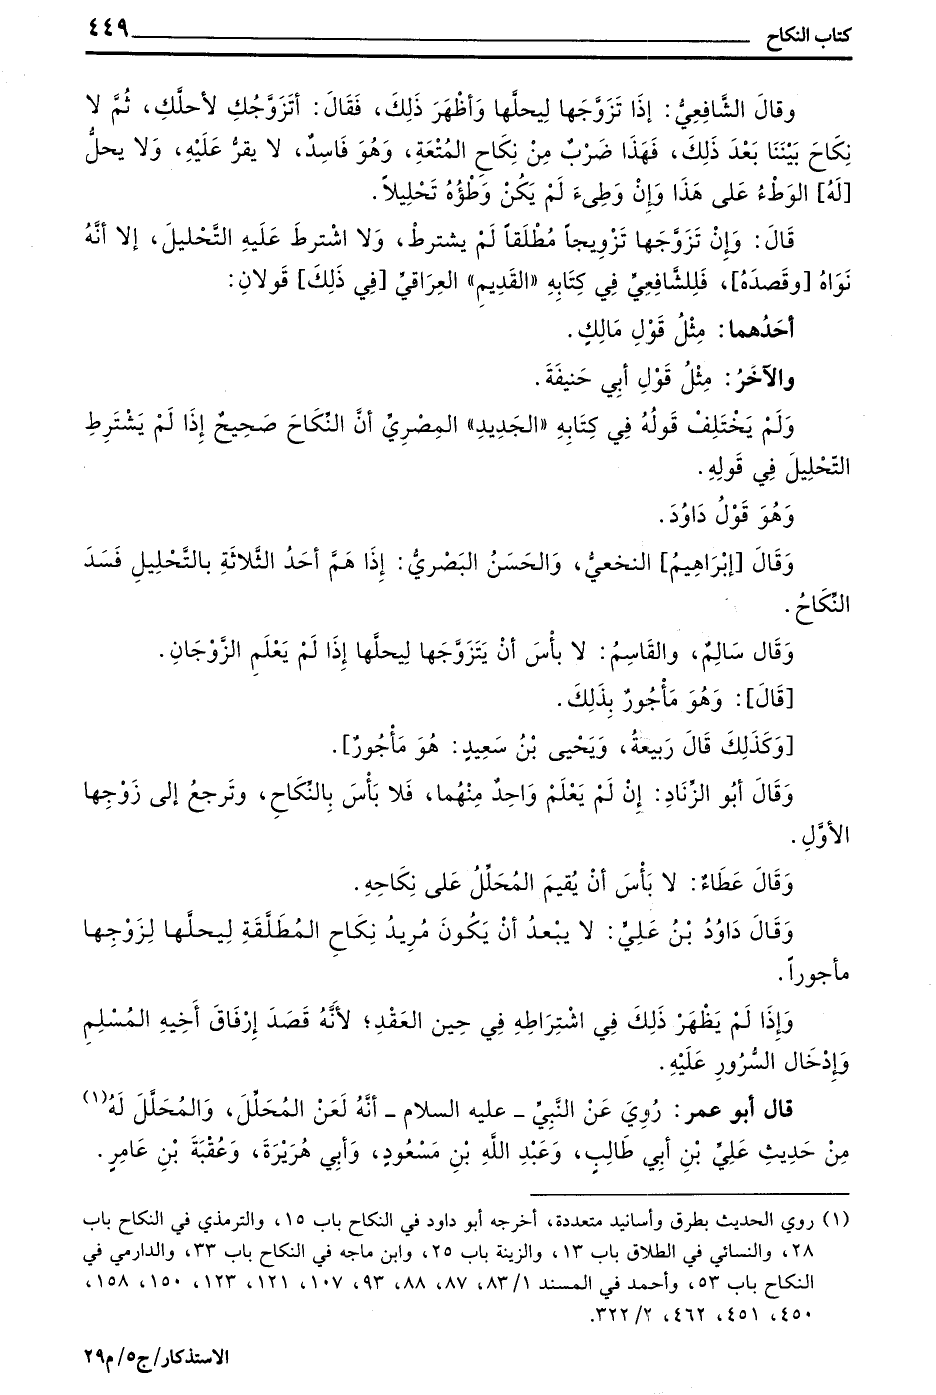 كتاب النكاح ٤٤٩
وقالَ الشَّافِعِيُّ: إذَا تَزَوَّجَها لِيحلَّها وَأظْهَرَ ذَلِكَ، فَقَالَ: أتَزَوَّجُكِ لأحلَّكِ، ثُمَّ لا
نِكَاحَ بَيْنَنَا بَعْدَ ذَلِكَ، فَهَذَا ضَرْبٌ مِنْ نِكَاحِ المُتْعَةِ، وَهُوَ فَاسِدٌ، لا يقرُّ عَلَيْهِ، وَلا يحلُّ
[لَهُ] الوَطْءُ عَلى هَذَا وَإِنْ وَطِىءَ لَمْ يَكُنْ وَطْؤُهُ تَحْلِيلاً.
قَالَ: وَإِنْ تَزَوَّجَها تَزْوِيجاً مُطْلَقاً لَمْ يشترطْ، وَلا اشْترطَ عَلَيهِ التَّحْليلَ، إلا أنَّهُ
نَوَاهُ [وقَصدَهُ]، فَلِلشَّافِعيِّ فِي كِتَابِهِ «القَدِيمِ» العِرَاقيِّ [فِي ذَلِكَ] قَولانِ:
أحَدُهما: مِثْلُ قَوْلِ مَالِكٍ.
والآخَرُ: مِثْلُ قَوْلِ أبِي حَنيفَةَ.
وَلَمْ يَخْتَلِفْ قَولُهُ فِي كِتَابِهِ «الجَدِيدِ» المِصْرِيِّ أنَّ النِّكَاحَ صَحِيحٌ إذَا لَمْ يَشْتَرِطِ
التّحْلِيلَ فِي قَولِهِ.
وَهُوَ قَوْلُ دَاوُدَ.
وَقَالَ [إبْرَاهِيمُ] النخعيُّ، وَالحَسَنُ البَصْرِيُّ: إِذَا هَمَّ أحَدُ الثَّلاثَةِ بالتَّحْلِيلِ فَسَدَ
النِّكَاحُ.
وَقَال سَالِمٌ، والقَاسِمُ: لا بأْسَ أنْ يَتَزَوَّجَها لِيحلَّها إذَا لَمْ يَعْلَمِ الزَّوْجَانِ.
[قَالَ]: وَهُوَ مَأْجُورٌ بِذَلِكَ.
[وَكَذَلِكَ قَالَ رَبيعةُ، وَيَحْيى بْنُ سَعِيدٍ: هُوَ مَأْجُورٌ].
وَقَالَ أبُو الزِّنَادِ: إنْ لَمْ يَعْلَمْ وَاحِدٌ مِنْهُما، فَلا بَأْسَ بِالنِّكَاحِ، وتَرجعُ إلى زَوْجِها
الأوَّلِ.
وَقَالَ عَطَاءٌ: لا بَأْسَ أنْ يُقيمَ المُحَلِّلُ عَلى نِكَاحِهِ.
وَقَالَ دَاوُدُ بْنُ عَلِيٍّ: لا يبْعدُ أنْ يَكُونَ مُرِيدُ نِكَاحِ المُطَلَّقَةِ لِيحلَّها لِزَوْجِها
مأجوراً.
وَإِذَا لَمْ يَظْهَرْ ذَلِكَ فِي اشْتِرَاطِهِ فِي حِينِ العَقْدِ؛ لأنَّهُ قَصَدَ إرْفَاقَ أَخِيهِ المُسْلِمِ
وَإِدْخَال السُّرُورِ عَلَيْهِ.
قال أبو عمر: رُوِيَ عَنْ النَّبيِّ ـ عليه السلام ـ أنَّهُ لَعَنْ المُحَلِّلَ، وَالمُحَلَّلَ لَهُ(١)
مِنْ حَدِيثِ عَلِيِّ بْنِ أبي طَالِبٍ، وَعَبْدِ اللَّهِ بْنِ مَسْعُودٍ، وَأبِي هُرَيْرَةَ، وَعُقْبَةَ بْنِ عَامِرٍ.
(١) روي الحديث بطرق وأسانيد متعددة، أخرجه أبو داود في النكاح باب ١٥، والترمذي في النكاح باب
٢٨، والنسائي في الطلاق باب ١٣، والزينة باب ٢٥، وابن ماجه في النكاح باب ٣٣، والدارمي في
النكاح باب ٥٣، وأحمد في المسند ١/ ٨٣، ٨٧، ٨٨، ٩٣، ١٠٧، ١٢١، ١٢٣، ١٥٠، ١٥٨،
٤٥٠، ٤٥١، ٤٦٢، ٢/ ٣٢٢.
الاستذكار/ ج٥/ م٢٩